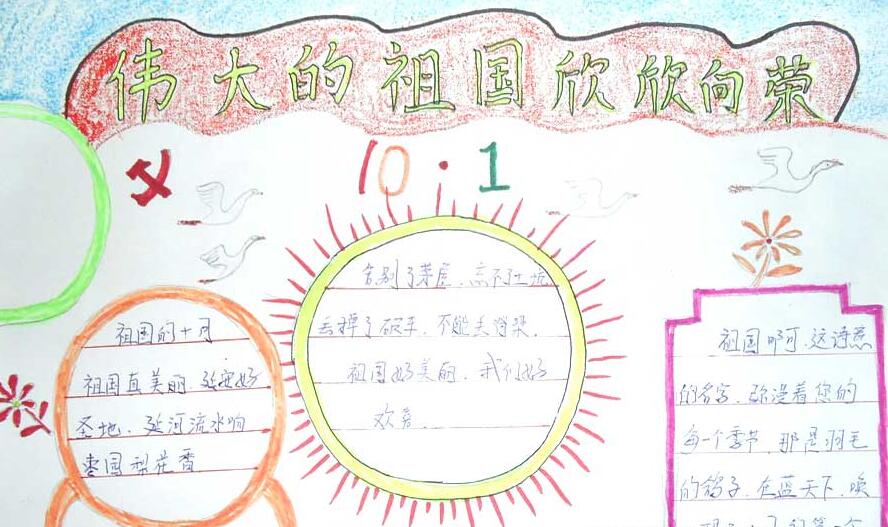 伟大的祖国欣欣向荣
10·1
祖国的十月
祖国真美丽.延安好
圣地.延河流水响
枣园梨花香
告别了茅屋.忘不了土坑
丢掉了破车.不能丢
祖国好美丽.我们好
欢喜
祖国啊可.这语
的名字.弥漫着您的
每一个季节.那是羽毛
的鸽子.在蓝天下.唤